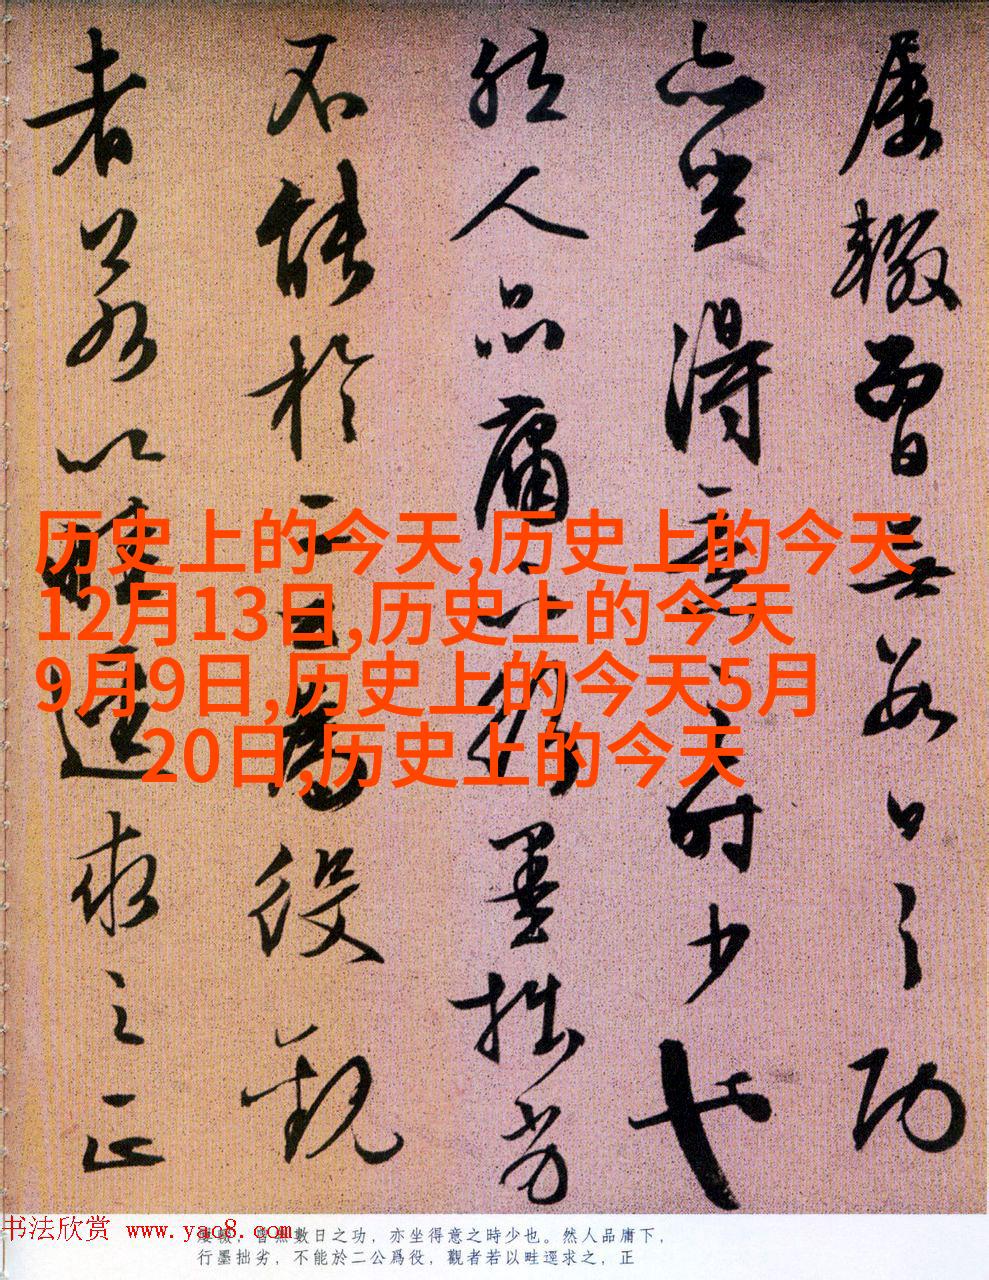 屡輟曾無數日之功
亦坐得意之時少也
然人品庸下行墨拙劣
不能於二公爲役觀
者若以畦逕求之正
历史上的今天,历史上的今天
12月13日,历史上的今天
9月9日,历史上的今天5月
20日,历史上的今天
书法欣赏 www.yac8.com
屢輟,曾無數日之功,亦坐得意之時少也。然人品庸下,
行墨拙劣,不能於二公爲役,觀者若以畦逕求之,正